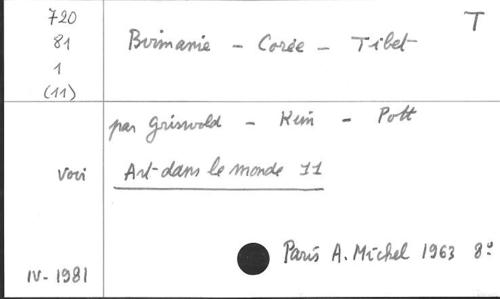 T
720
81
1
(11)
Birmanie - Corée - Tibet
par Griswold - Kim - Pott
Voir
Art dans le monde 11
Paris A. Michel 1963 8º
IV-1981